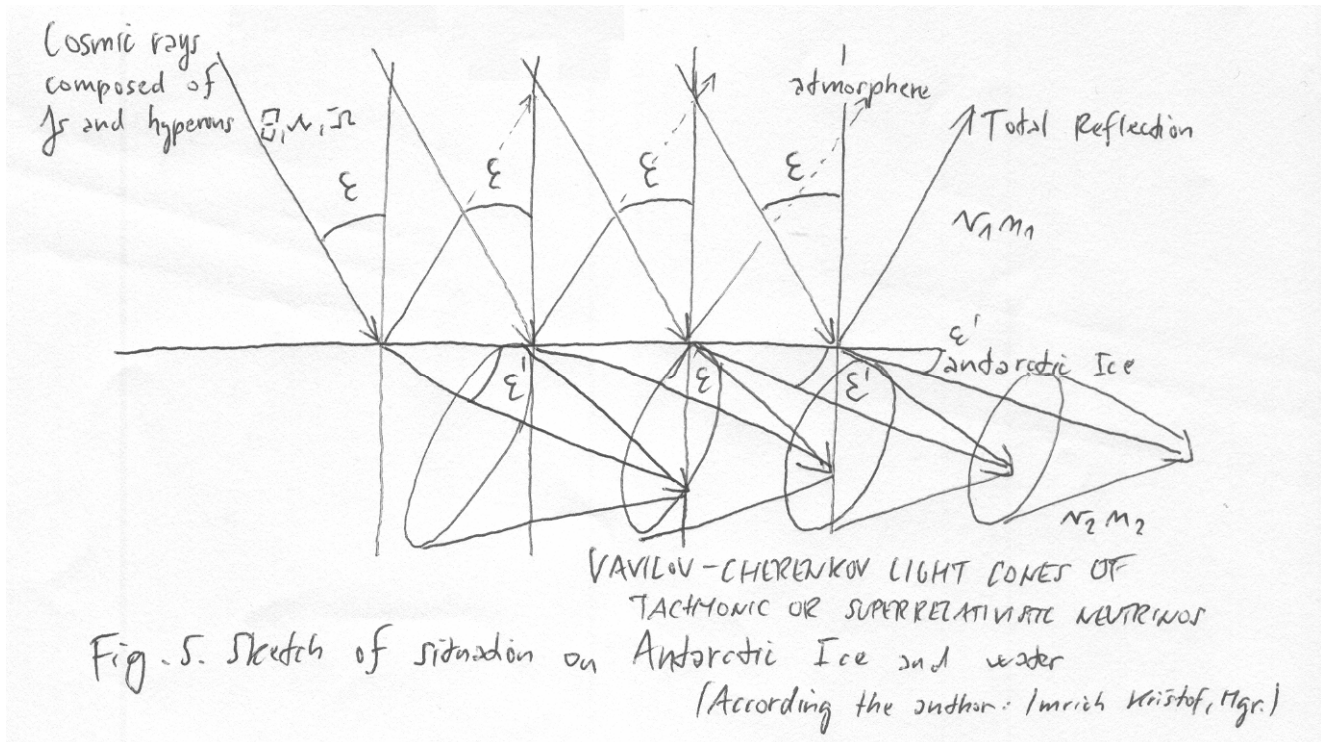 Cosmic rays
composed of
γs and hyperons Ξ, Λ, Ω
ε
ε
ε
ε
atmosphere
Total Reflection
N₁ n₁
ε'
antarctic Ice
ε'
ε
ε'
N₂ n₂
VAVILOV-CHERENKOV LIGHT CONES OF
TACHYONIC OR SUPERRELATIVISTIC NEUTRINOS
Fig. 5. Sketch of situation on Antarctic Ice and water
(According the author: Imrich Krištof, Mgr.)